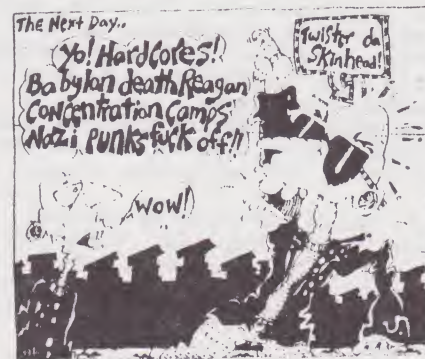 The Next Day..
Yo! Hardcores!
Babylon death Reagan
Concentration Camps
Nazi punks fuck off!!
Twister da
Skinhead!
WOW!